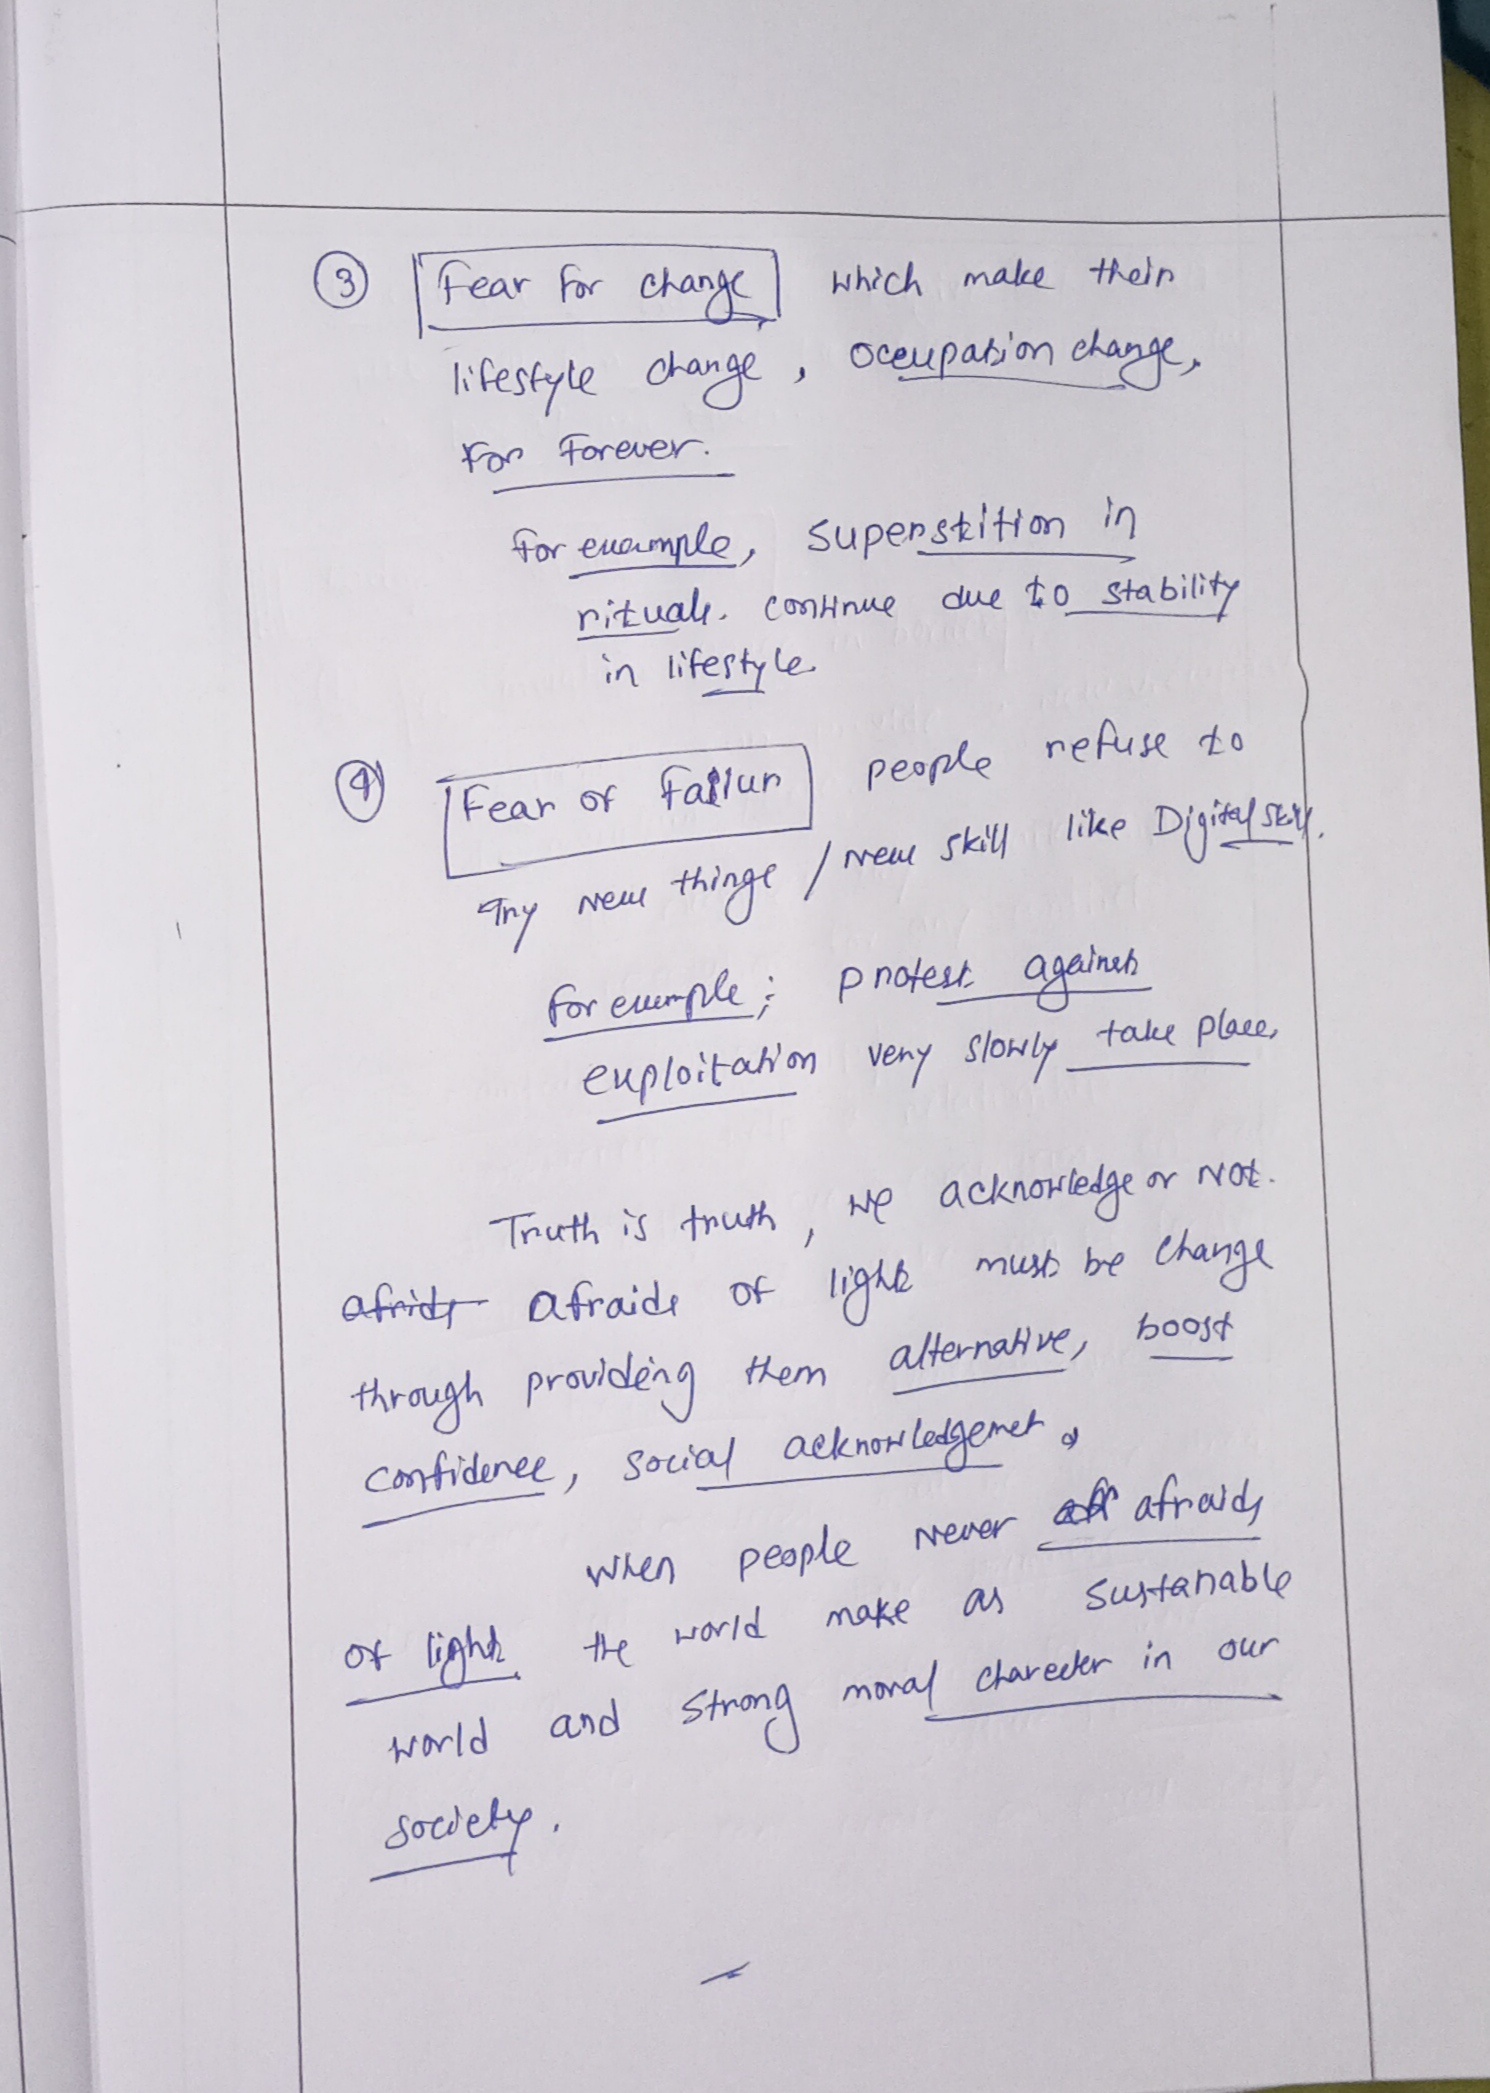 ③ Fear for change which make their
lifestyle change, occupation change,
For Forever.
for example, superstition in
rituals. continue due to stability
in lifestyle.
④ Fear of Failur people refuse to
Try new things / new skill like Digital skill.
for example; protest against
exploitation very slowly take place,
Truth is truth, we acknowledge or Not.
afrids afraids of light must be change
through providing them alternative, boost
confidence, social acknowledgemet,
when people never aff afraids
of light, the world make as sustanable
world and strong moral charecter in our
society.